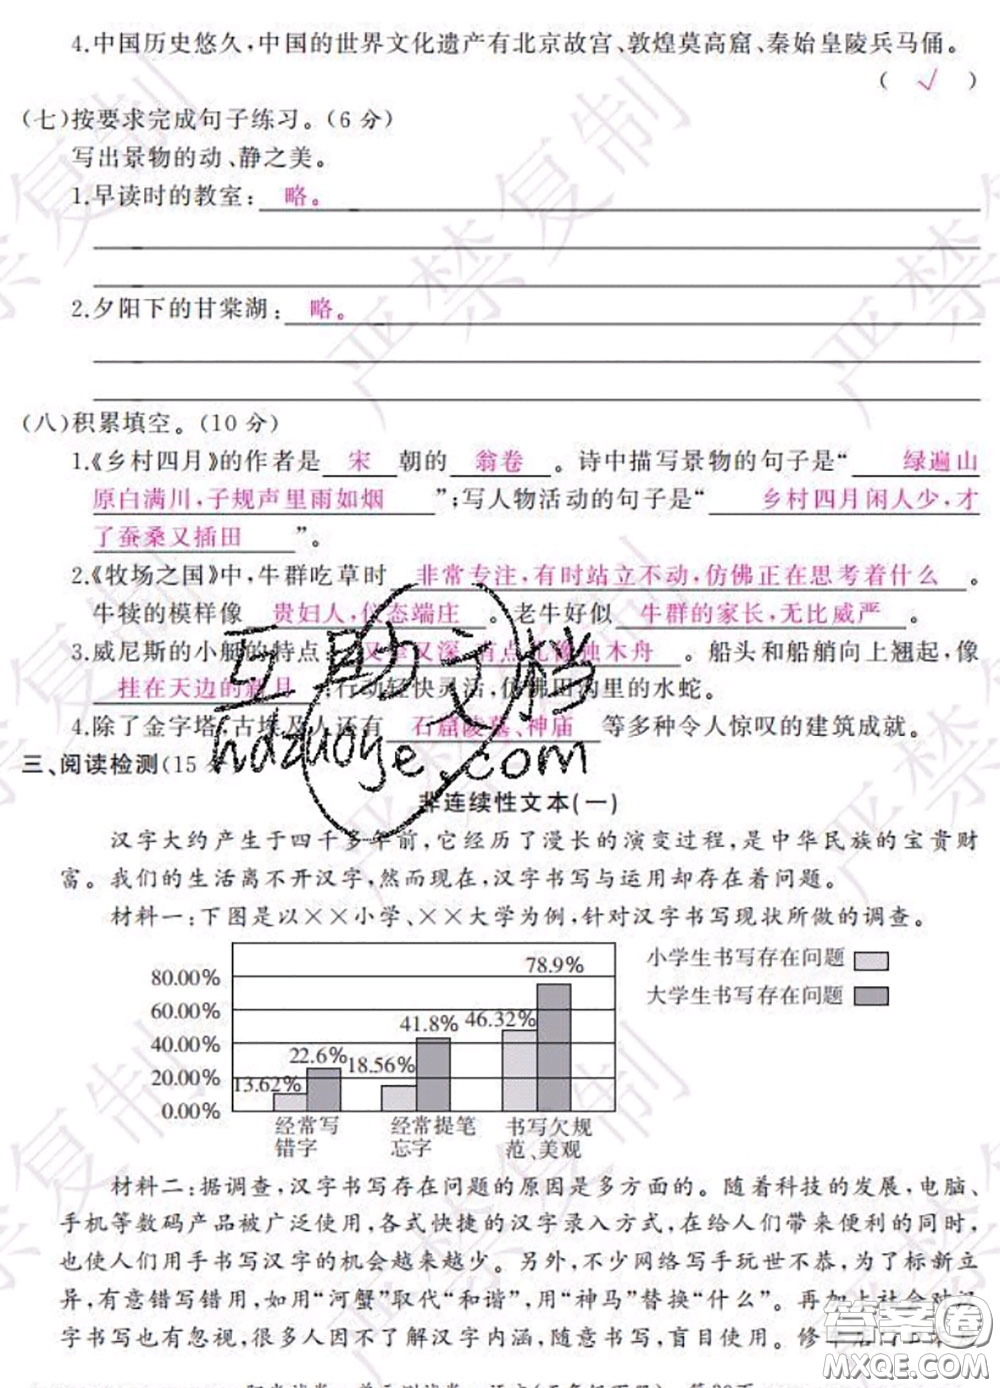 4.中国历史悠久,中国的世界文化遗产有北京故宫、敦煌莫高窟、秦始皇陵兵马俑。
( √ )
(七)按要求完成句子练习。(6分)
写出景物的动、静之美。
1.早读时的教室: 略。
2.夕阳下的甘棠湖: 略。
(八)积累填空。(10分)
1.《乡村四月》的作者是 宋 朝的 翁卷 。诗中描写景物的句子是“ 绿遍山
原白满川,子规声里雨如烟 ”;写人物活动的句子是“ 乡村四月闲人少,才
了蚕桑又插田 ”。
2.《牧场之国》中,牛群吃草时 非常专注,有时站立不动,仿佛正在思考着什么 。
牛犊的模样像 贵妇人,仪态端庄 。老牛好似 牛群的家长,无比威严 。
3.威尼斯的小艇的特点 又窄又深,有点儿像独木舟 。船头和船艄向上翘起,像
挂在天边的新月 ;行动轻快灵活,仿佛田沟里的水蛇。
4.除了金字塔,古埃及人还有 石窟陵墓、神庙 等多种令人惊叹的建筑成就。
三、阅读检测(15
非连续性文本(一)
汉字大约产生于四千多年前,它经历了漫长的演变过程,是中华民族的宝贵财
富。我们的生活离不开汉字,然而现在,汉字书写与运用却存在着问题。
材料一:下图是以××小学、××大学为例,针对汉字书写现状所做的调查。
小学生书写存在问题
大学生书写存在问题
80.00%
60.00%
40.00%
20.00%
0.00%
13.62%
22.6%
18.56%
41.8%
46.32%
78.9%
经常写
错字
经常提笔
忘字
书写欠规
范、美观
材料二:据调查,汉字书写存在问题的原因是多方面的。随着科技的发展,电脑、
手机等数码产品被广泛使用,各式快捷的汉字录入方式,在给人们带来便利的同时,
也使人们用手书写汉字的机会越来越少。另外,不少网络写手玩世不恭,为了标新立
异,有意错写错用,如用“河蟹”取代“和谐”,用“神马”替换“什么”。再加上社会对汉
字书写也有忽视,很多人因不了解汉字内涵,随意书写,盲目使用。修车店门口
互助文档
hdzuoye.com
答案圈
MXQE.COM
严禁复制
严禁复制
严禁复制
严禁复制